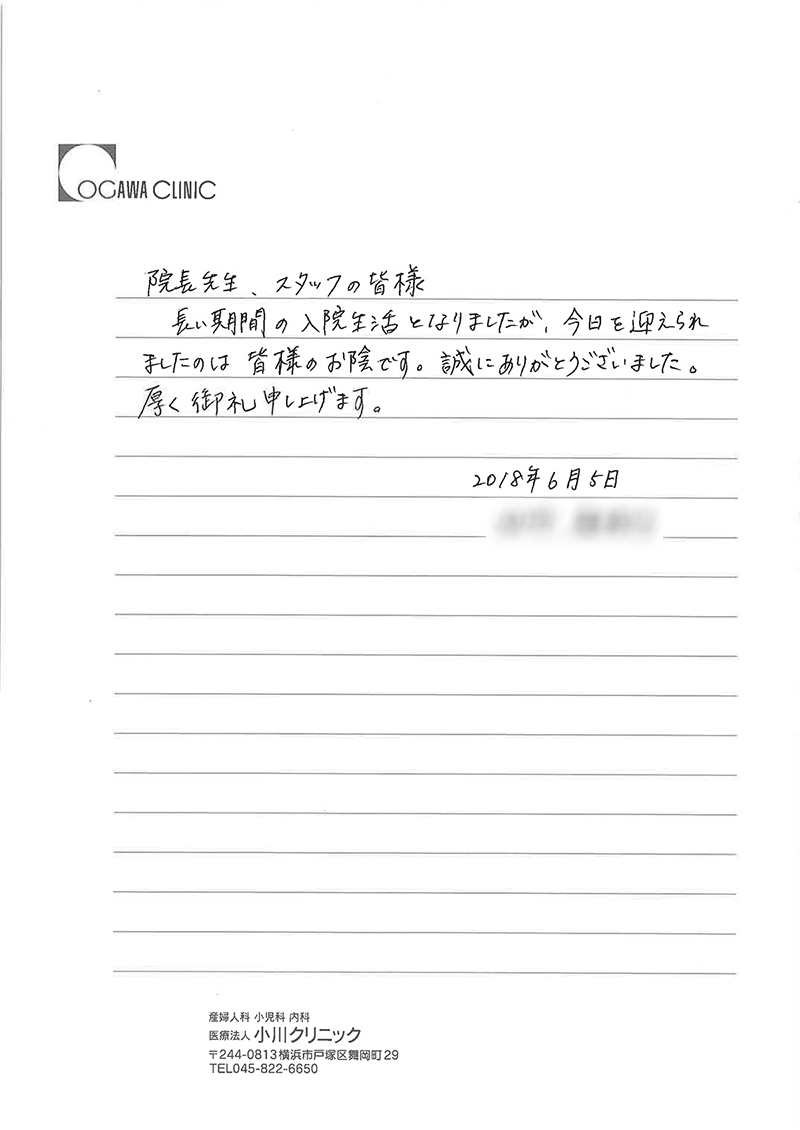 OGAWA CLINIC
院長先生、スタッフの皆様
長い期間の入院生活となりましたが、今日を迎えられ
ましたのは皆様のお陰です。誠にありがとうございました。
厚く御礼申し上げます。
2018年6月5日
産婦人科 小児科 内科
医療法人 小川クリニック
〒244-0813横浜市戸塚区舞岡町29
TEL045-822-6650